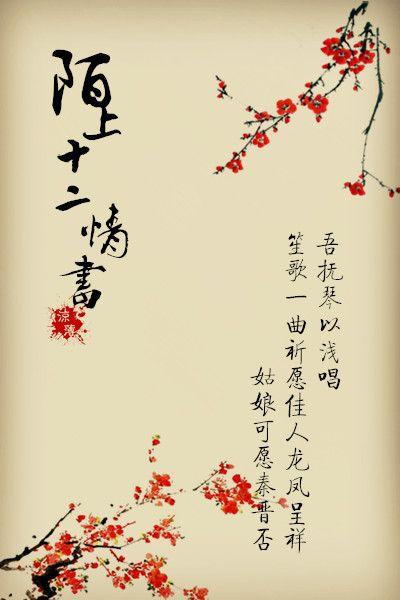 陌上十二情書
吾抚琴以浅唱
笙歌一曲祈愿佳人龙凤呈祥
姑娘可愿秦晋否